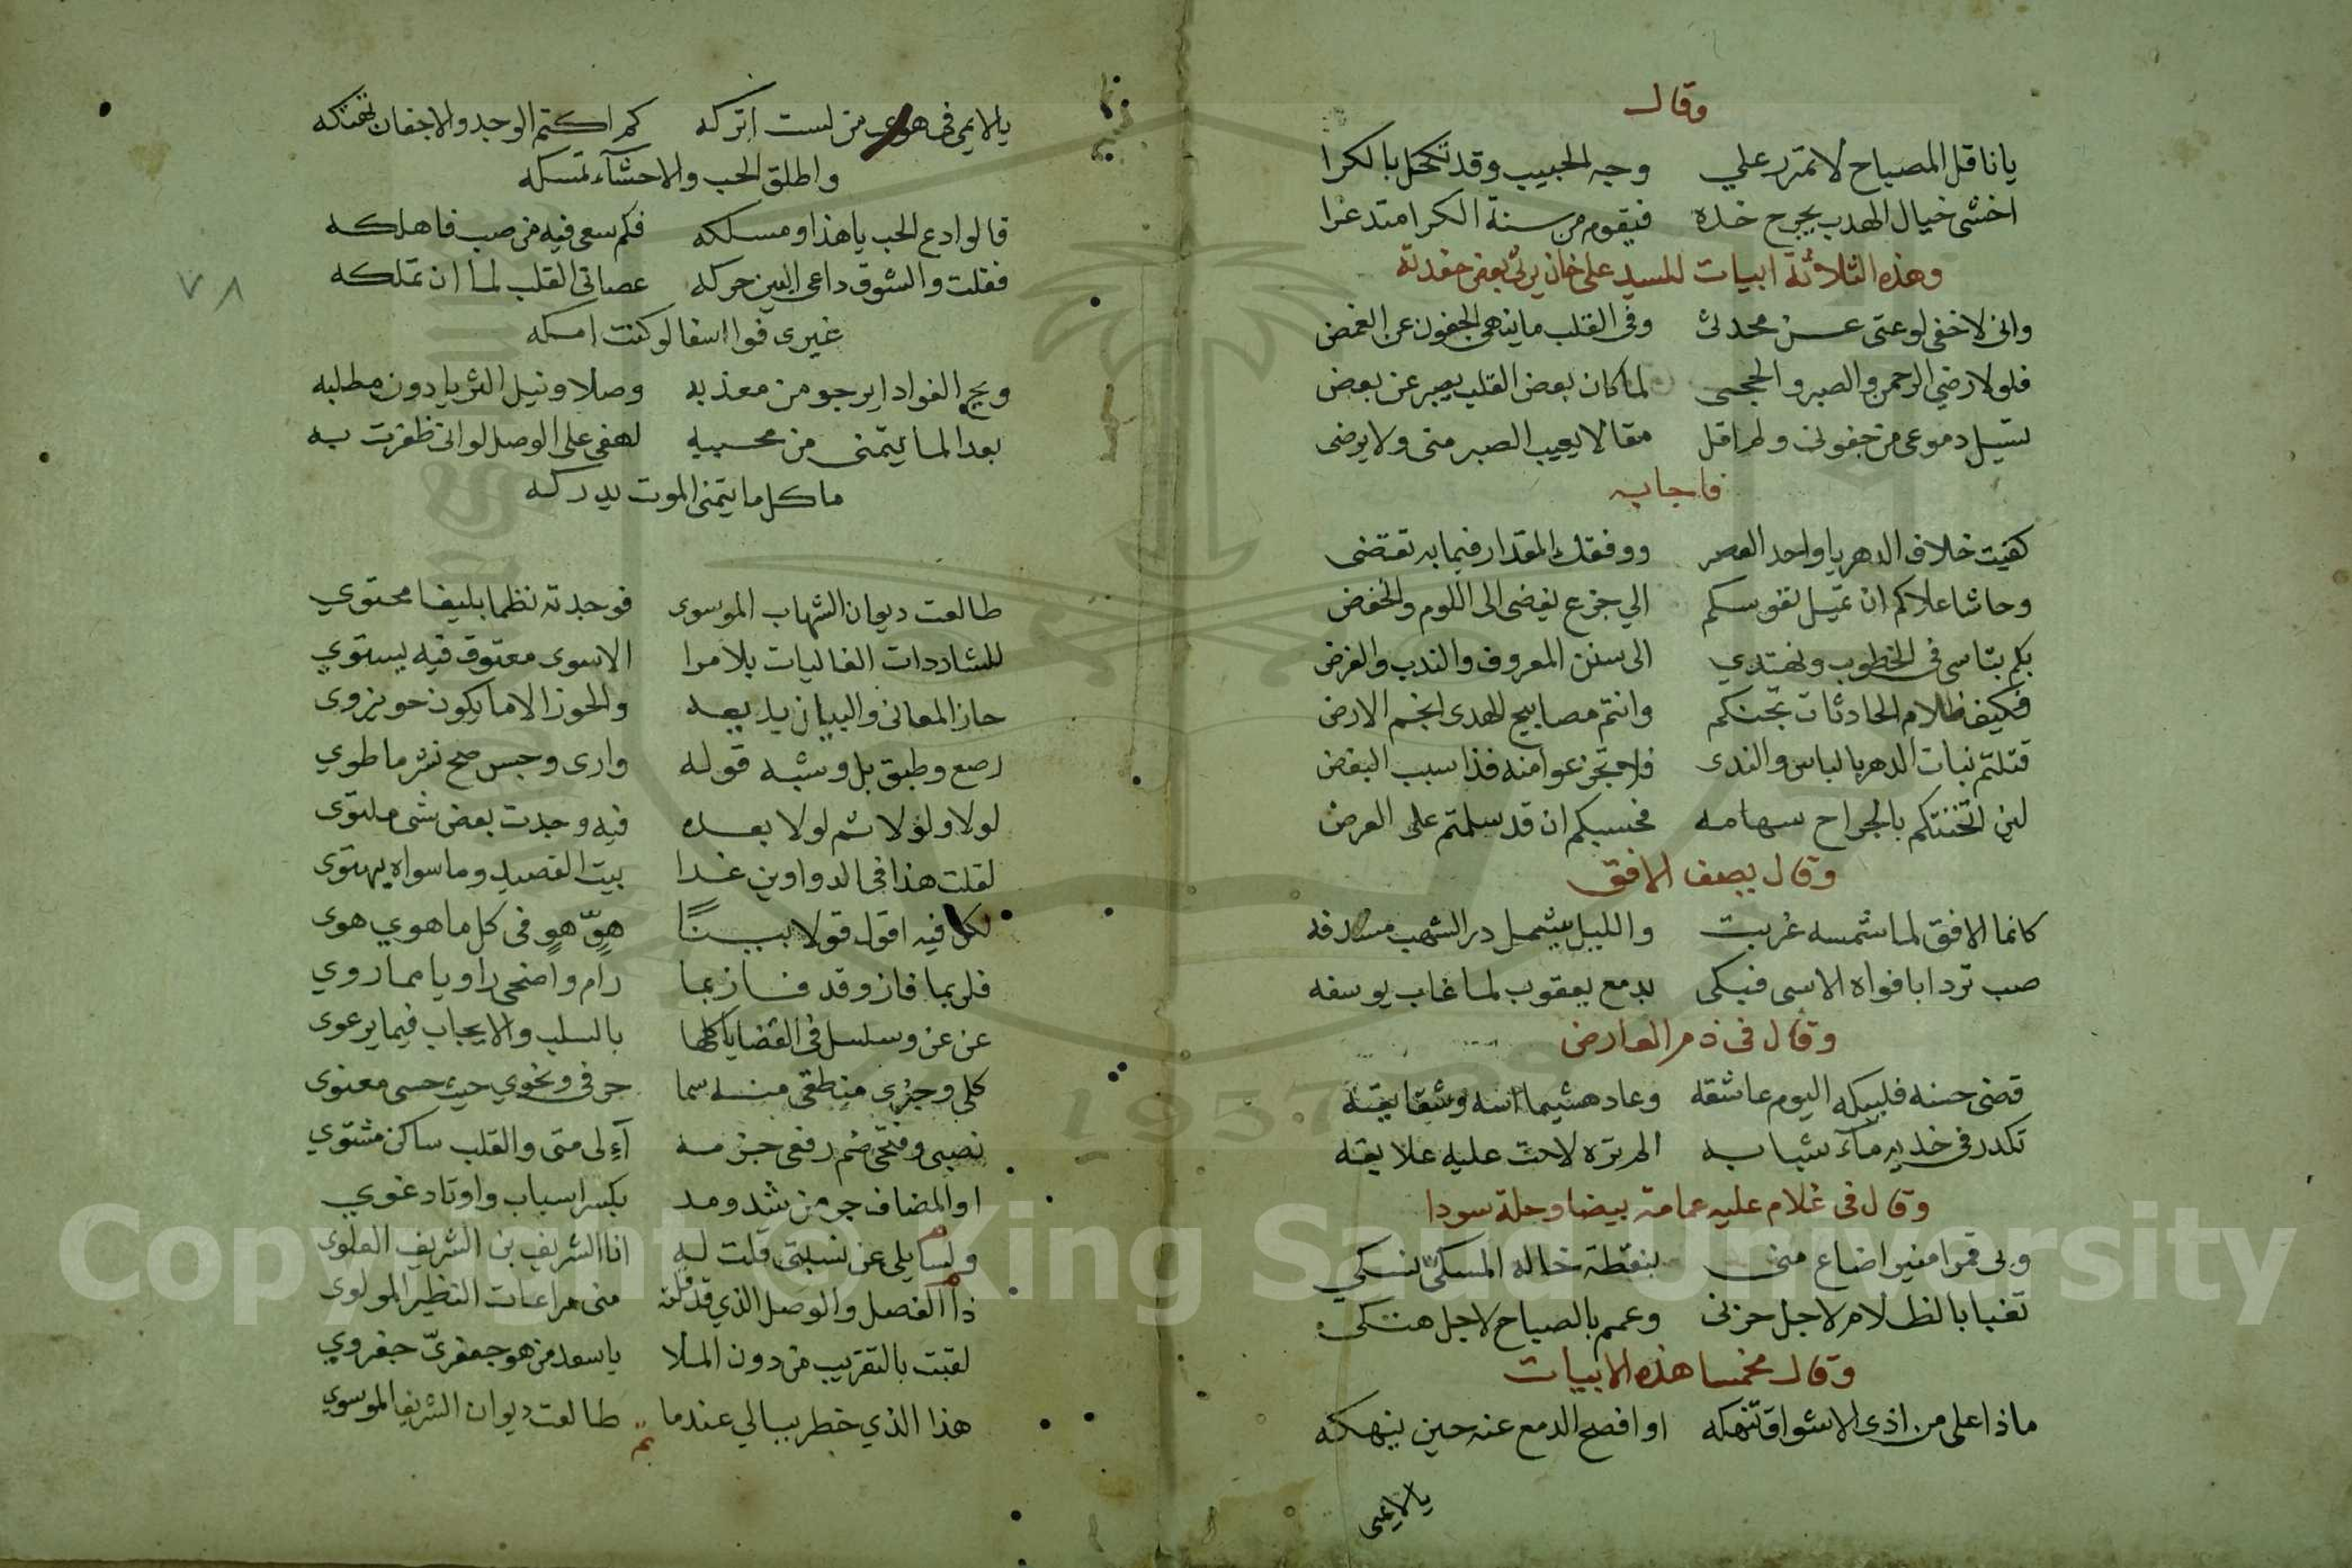 وقال
يا ناقل المصباح لا تمرر علي وجه الحبيب وقد تكحل بالكرا
اخشى خيال الهدب يجرح خده فيقوم من سنة الكرا متدعرا
وهذه الثلاثة ابيات للسيد علي خان يرثي بعض حفدته
واني لاخفي لوعتي عن محدثي وفي القلب ما ينهى الجفون عن الغمض
فلولا رضي الرحمن والصبر والحجى لما كان بعض القلب يصبر عن بعض
تسيل دموعي من جفوني ولم اقل مقالا يعيب الصبر مني ولا يرضى
فاجابه
كفيت خلاف الدهر يا واحد العصر ووفقك المقدار فيما به تقتضى
وحاشا علاكم ان تميل نفوسكم الي جزع يفضى الى اللوم والخفض
بكم يتاسى في الخطوب ونهتدي الى سنن المعروف والندب والفرض
فكيف ظلام الحادثات تجنكم وانتم مصابيح الهدى انجم الارض
قتلتم بنات الدهر بالباس والندى فلا تجزعوا منه فذا سبب البغض
لئن اثخنتكم بالجراح سهامه فحسبكم ان قد سلمتم على العرض
وقال يصف الافق
كانما الافق لما شمسه غربت والليل يشمل در الشهب مسدفه
صب تردا بافواه الاسى فبكى بدمع يعقوب لما غاب يوسفه
وقال في ذم العارض
قضى حسنه فليبكه اليوم عاشقه وعاد هشيما اسه وشقايقه
تكدر في خديه مآء شبابه الم تره لاحت عليه علايقه
وقال في غلام عليه عمامة بيضا وحلة سودا
وبي قمرا منيرا ضاع مني بنقطة خاله المسكي نسكي
تغبا بالظلام لاجل حزني وعمم بالصباح لاجل هتكي
وقال مخمسا هذه الابيات
ماذا على من اذى الاشواق تنهكه او افصح الدمع عنه حين ينهكه
يا لايمي
يا لايمي في هوى من لست اتركه كم اكتم الوجد والاجفان تهتكه
واطلق الحب والاحشآء تمسكه
قالوا دع الحب يا هذا ومسلكه فكم سعى فيه من صب فاهلكه
فقلت والشوق داعي البين حركه عصاني القلب لما ان تملكه
غيرى فوا اسفا لو كنت امسكه
ويح الفواد ايرجو من معذبه وصلا ونيل الثريا دون مطلبه
بعدا لما يتمنى من محببه لهفي على الوصل لو اني ظفرت به
ما كل ما يتمنى الموت يدركه
٧٨
طالعت ديوان الشهاب الموسوى فوجدته نظما بليغا محتوي
للشاردات الغاليات بلا مرا الاسوى معتوق فيه يستوي
حاز المعاني والبيان بديعه والحوز الا ما يكون حو نزوى
رصع وطبق بل وشبه قوله وارى وجس صح نشر ما طوي
لولا ولولا ثم لولا بعده فيه وجدت بعض شى ملتوى
لقلت هذا في الدواوين غدا بيت القصيد وما سواه يهتوى
لكن فيه اقول قولا بينًا هوّ هوٍ في كل ما هوي هوى
فلربما فاز وقد فاز بما رام واضحى راويا مما روي
عن عن وسلسل في القضايا كلها بالسلب والايجاب فيما يرعوى
كلي وجزي منطقي منه سما حرفي ونحوي حيث حسى معنوى
نصبى وفتحى ضم رفعى جزمه آءلى متى والقلب ساكن مشتوي
او المضاف جر من شد ومد بكسر اسباب واوتاد غوي
ولسايلي عن نسبتي قلت له انا الشريف بن الشريف العلوى
ذا الفصل والوصل الذي قد قلته منى مراعات النظير المولوى
لقبت بالتقريب من دون الملا يا سعد من هو جعفريّ جفروي
هذا الذي خطر ببالي عندما طالعت ديوان الشريف الموسوي
تم
Copyright © King Saud University
1957